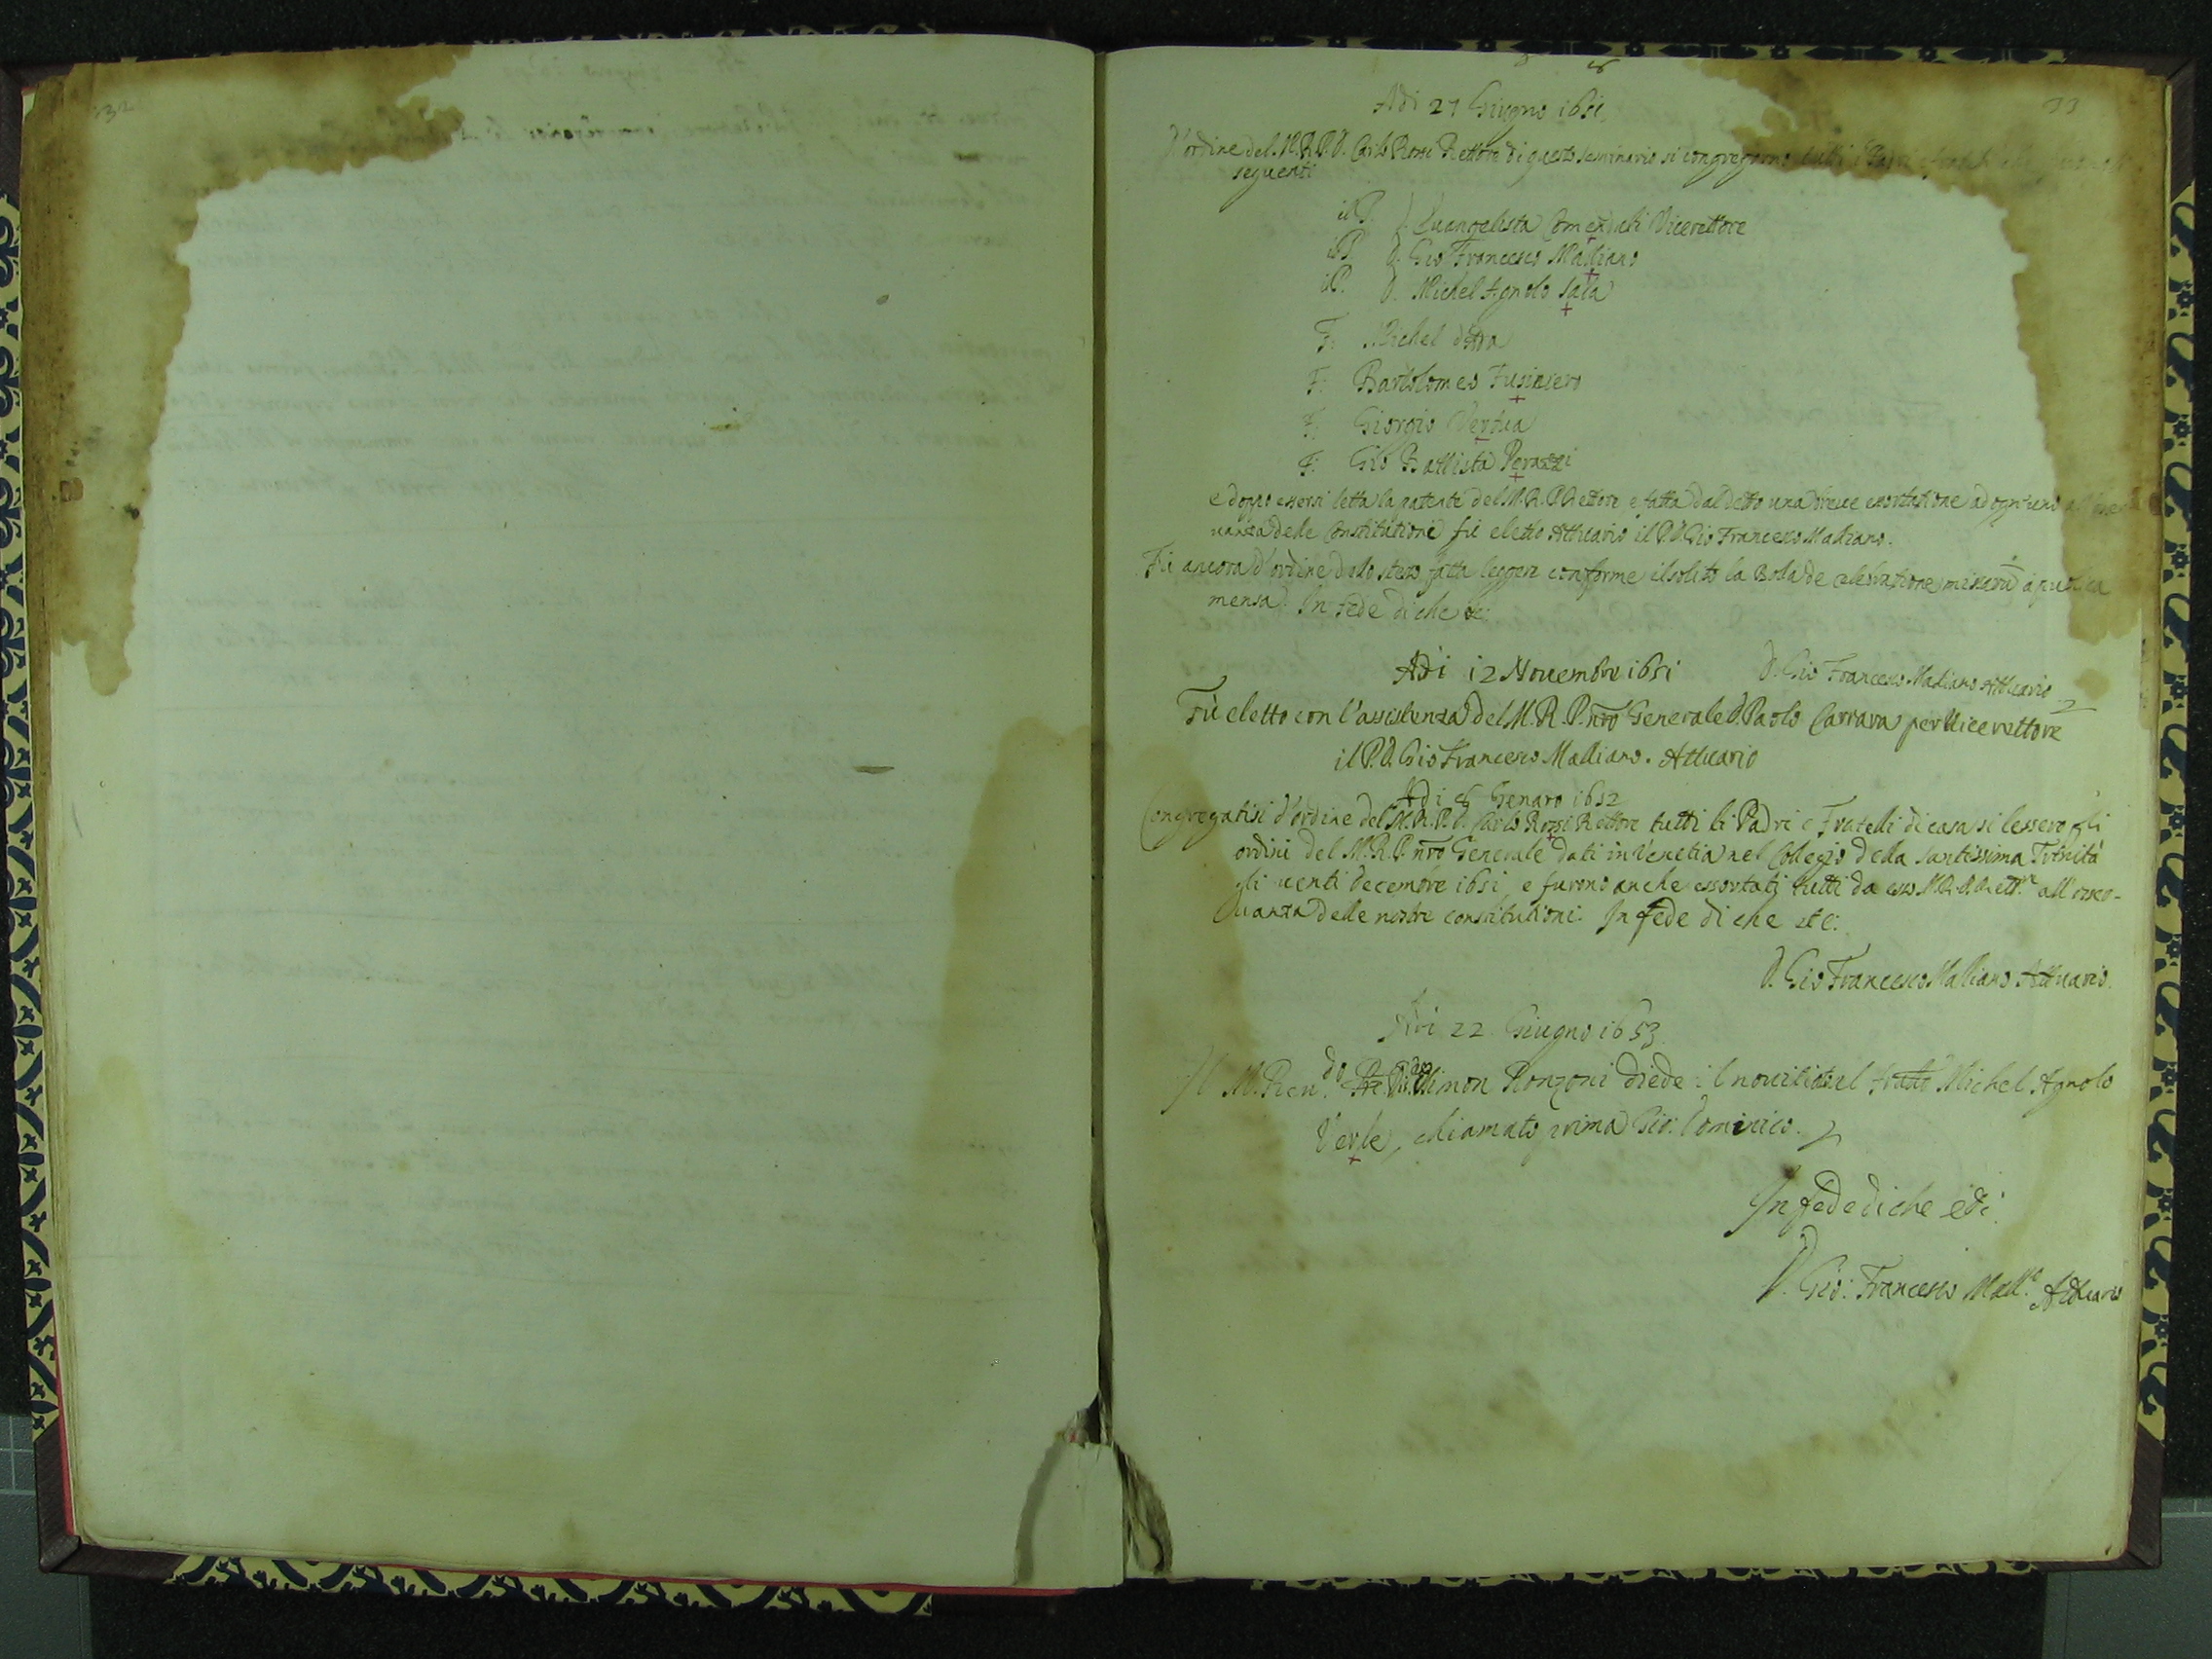 32
33
Adi 27 Giugno 1651
D'ordine del M. R. P. D. Carlo Rossi Rettore di questo seminario si congregorno tutti i Padri
seguenti
il P. D. Euangelista Comendali Vicerettore
il P. D. Gio Francesco Malliano
il P. D. Michel Agnolo Sala
F: Michel
F: Bartolomeo Fusinero
F: Giorgio Vertua
F: Gio Battista Perazzi
e doppo essersi letta la patente del M. R. P. Rettore e fatta dal detto una breue esortatione ad ogn'uno
uanza delle Constitutioni fù eletto Attuario il P. D. Gio Francesco Malliano.
Fù ancora d'ordine delo steso fatta leggere conforme il solito la Bolla de celebratione missarũ à publica
mensa. In fede di che &c:
Adi 12 Nouembre 1651
D. Gio Francesco Malliano Attuario
Fù eletto con l'assistenza del M. R. P. nr̃o Generale D. Paolo Carrara per Vicerettore
il P. D. Gio Francesco Malliano. Attuario
Adi 6 Genaro 1652
Congregatisi d'ordine del M. R. P. D. Carlo Rossi Rettore tutti li Padri e Fratelli di casa si lessero gli
ordini del M. R. P. nr̃o Generale dati in Venetia nel Collegio della Santissima Trinità
gli uenti decembre 1651, e furono anche essortati tutti da esso M. R. P. Rett.re all'osser-
uanza delle nostre constitutioni. In fede di che etc:
D. Gio Francesco Malliano Attuario.
Adi 22 Giugno 1653.
Il M. Reu.do Simon Ronzoni diede il nouitiato al fratello Michel Agnolo
Verle, chiamato prima Gio: Dominico.
In fede di che
D. Gio: Francesco Mall.o Attuario